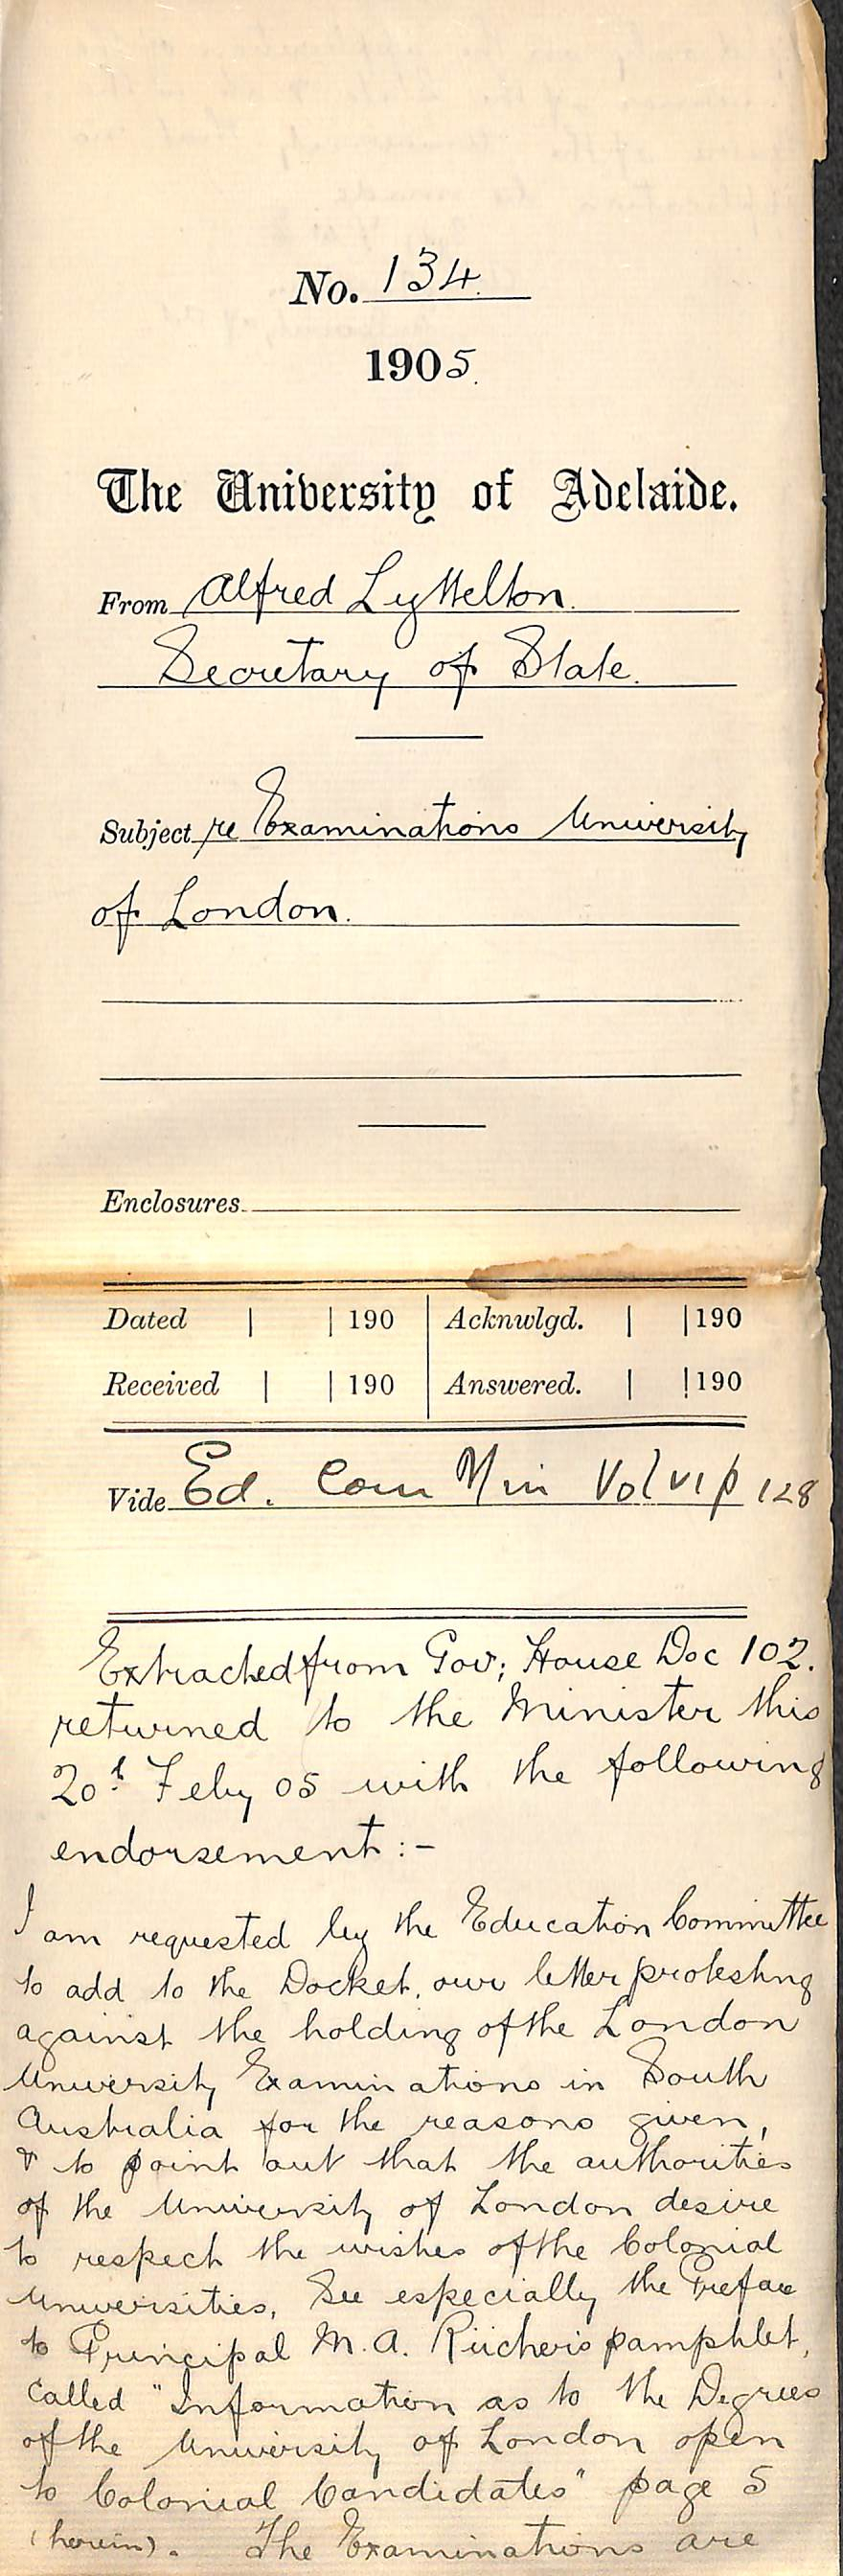 No. 134.
1905.
The University of Adelaide.
From Alfred Lyttelton.
Secretary of State.
Subject re Examinations University
of London.
Enclosures
Dated | | 190 | Acknwlgd. | | 190
Received | | 190 | Answered. | | 190
Vide Ed. Com Min Vol VI p 128
Extracted from Gov; House Doc 102.
returned to the Minister this
20t Feby 05 with the following
endorsement :-
I am requested by the Education Committee
to add to the Docket, our letter protesting
against the holding of the London
University Examinations in South
Australia for the reasons given,
& to point out that the authorities
of the University of London desire
to respect the wishes of the Colonial
Universities, See especially the Preface
to Principal M. A. Rücher's pamphlet,
called "Information as to the Degrees
of the University of London open
to Colonial Candidates" page 5
(herein). The Examinations are